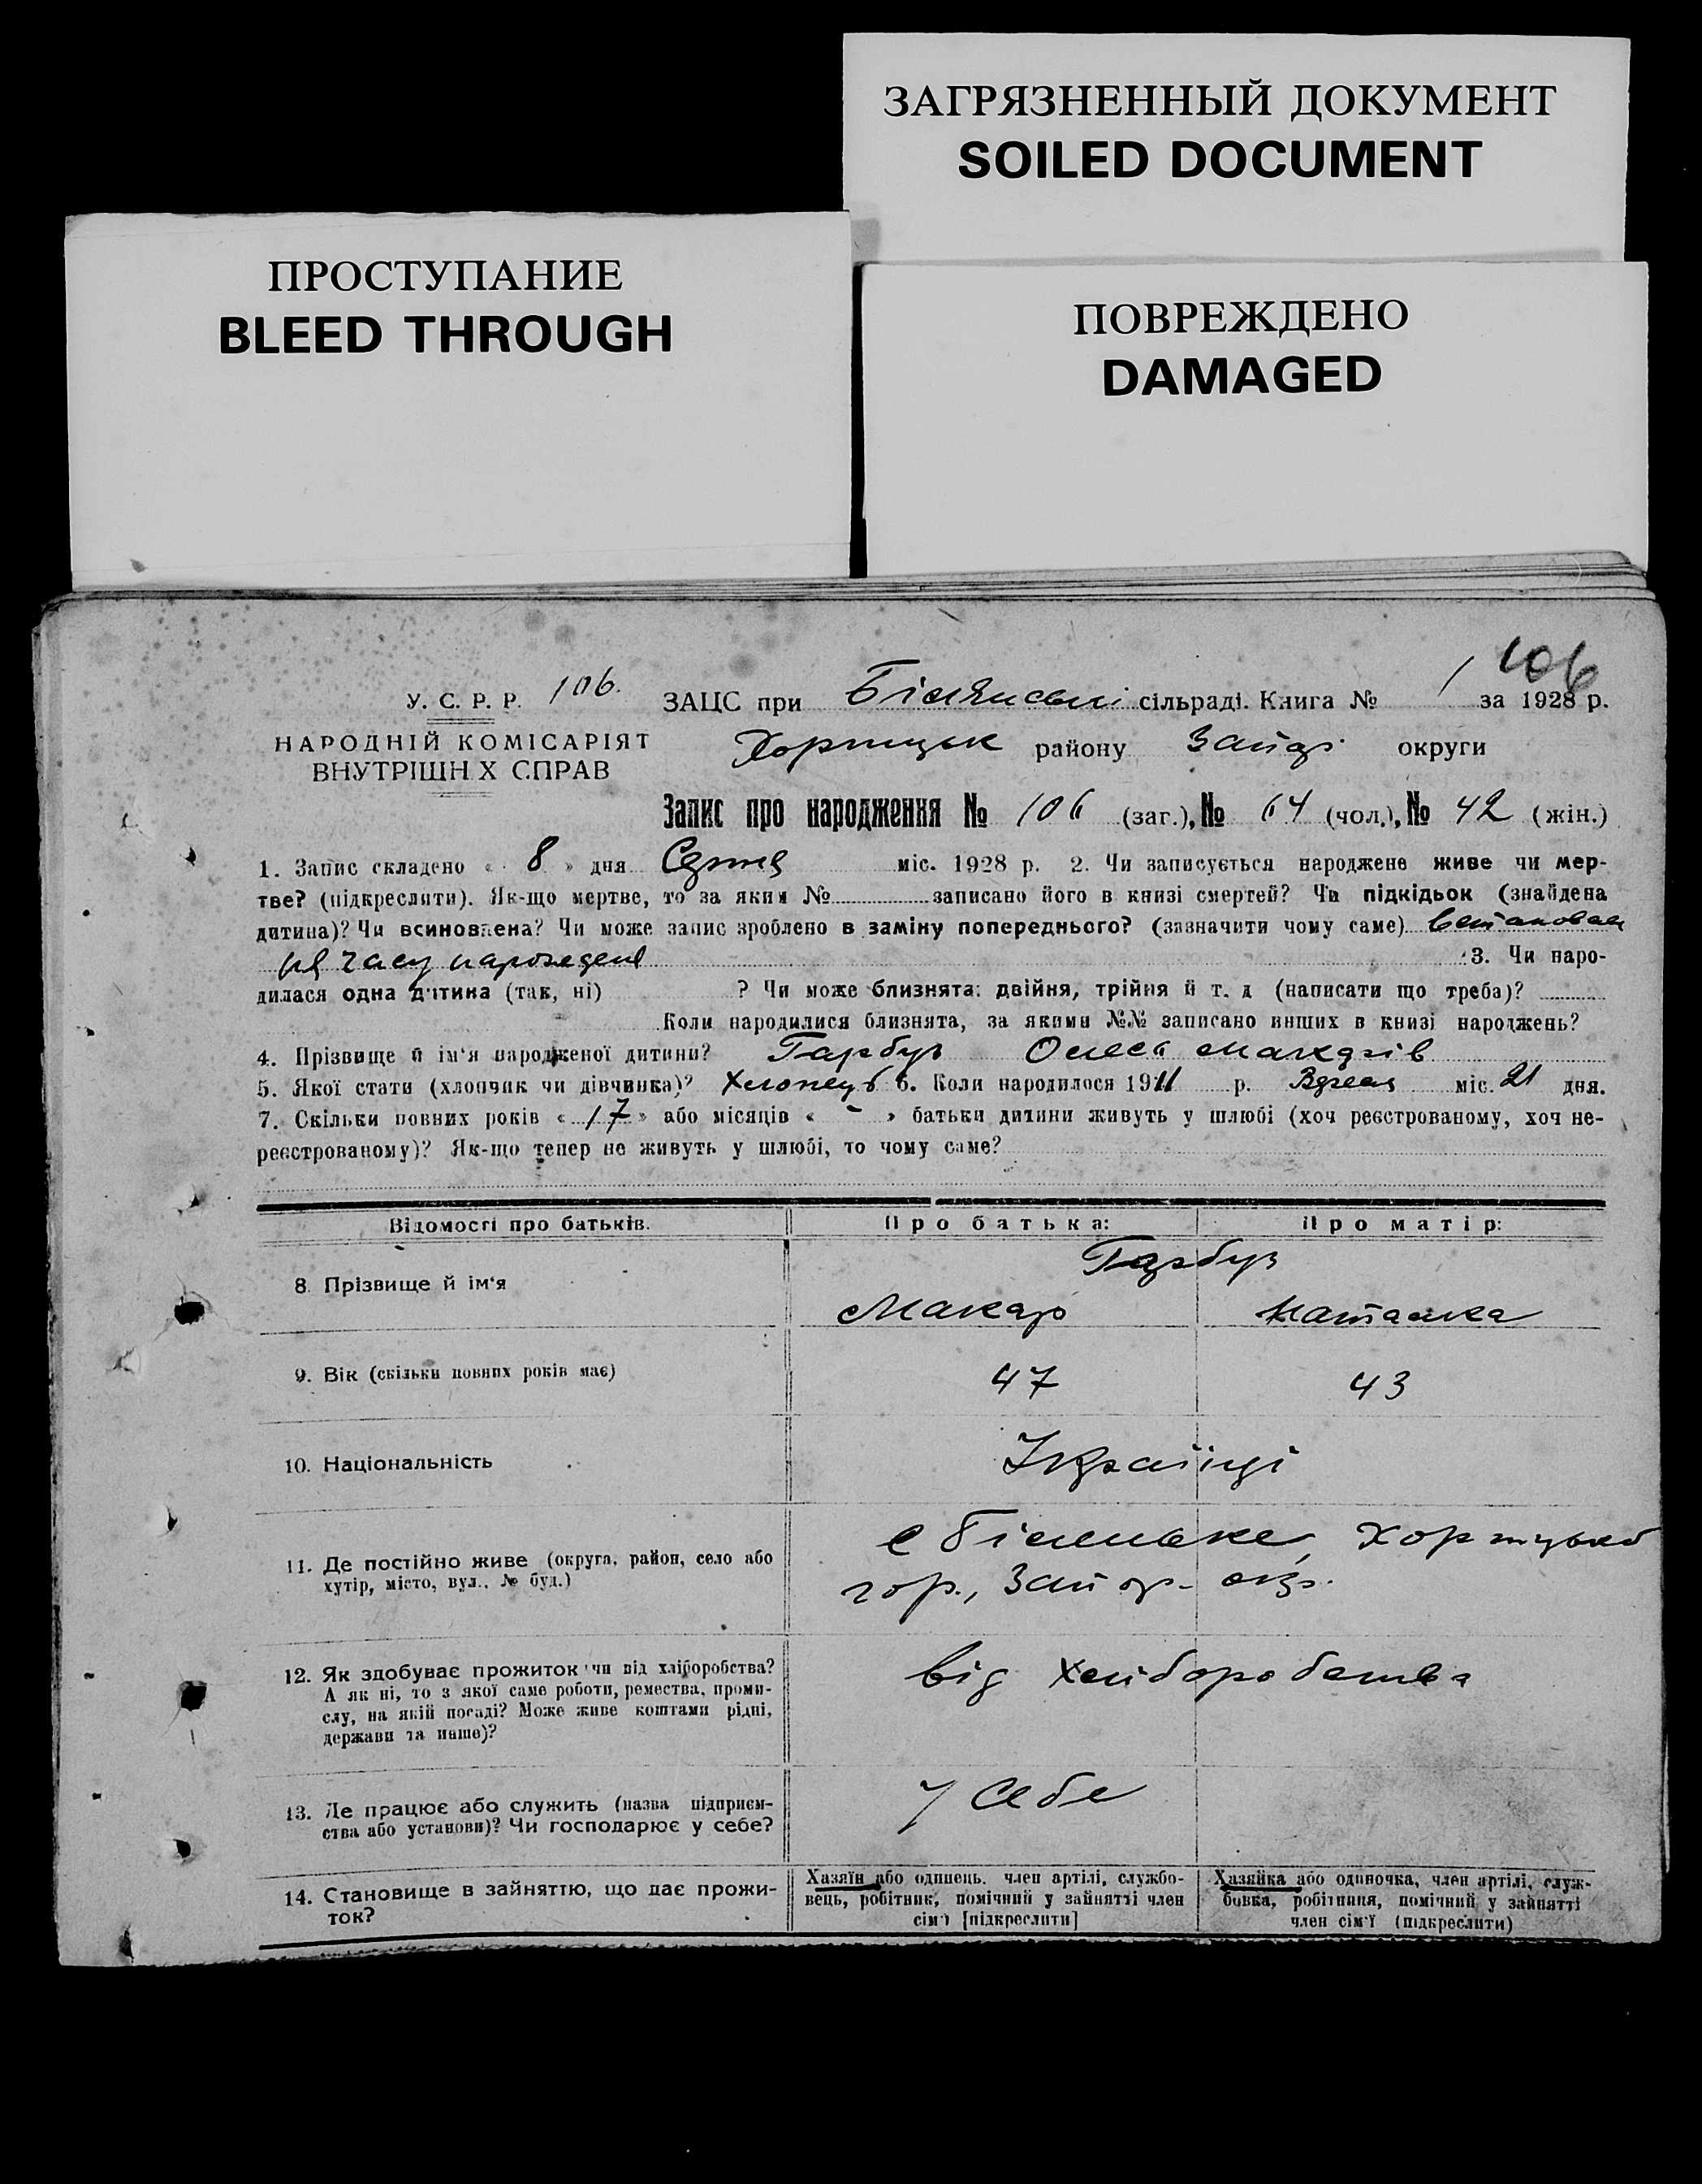 ЗАГРЯЗНЕННЫЙ ДОКУМЕНТ
SOILED DOCUMENT
ПРОСТУПАНИЕ
BLEED THROUGH
ПОВРЕЖДЕНО
DAMAGED
106
У. С. Р. Р. 106.
ЗАЦС при сільраді. Книга № 1 за 1928 р.
НАРОДНІЙ КОМІСАРІЯТ
ВНУТРІШН Х СПРАВ
району округи
Запис про народження № 106 (заг.), № 64 (чол.), № 42 (жін.)
1. Запис складено « 8 » дня міс. 1928 р. 2. Чи записується народжене живе чи мер-
тве? (підкреслити). Як-що мертве, то за яким № записано його в книзі смертей? Чи підкідьок (знайдена
дитина)? Чи всиновлена? Чи може запис зроблено в заміну попереднього? (зазначити чому саме)
часу 3. Чи наро-
дилася одна дитина (так, ні) ? Чи може близнята: двійня, трійня й т. д (написати що треба)?
Коли народилися близнята, за якими №№ записано инших в книзі народжень?
4. Прізвище й ім'я народженої дитини? Гарбуз
5. Якої стати (хлопчик чи дівчинка)? Хлопець 6. Коли народилося 1911 р. міс. 21 дня.
7. Скільки повних років « 17 » або місяців « - » батьки дитини живуть у шлюбі (хоч реєстрованому, хоч не-
реєстрованому)? Як-що тепер не живуть у шлюбі, то чому саме?
Відомості про батьків. Про батька: Про матір:
Гарбуз
8. Прізвище й ім'я Макар Наталка
9. Вік (скільки повних років має) 47 43
10. Національність Українці
11. Де постійно живе (округа, район, село або
хутір, місто, вул., № буд.)
12. Як здобуває прожиток чи від хліборобства? від хліборобства
А як ні, то з якої саме роботи, ремества, проми-
слу, на якій посаді? Може живе коштами рідні,
держави та инше)?
13. Де працює або служить (назва підприєм- У себе
ства або установи)? Чи господарює у себе?
14. Становище в зайняттю, що дає прожи-
ток?
Хазяїн або одинець. член артілі, службо-
вець, робітник, помічний у зайнятті член
сім'ї [підкреслити]
Хазяйка або одиночка, член артілі, служ-
бовка, робітниця, помічний у зайнятті
член сім'ї (підкреслити)